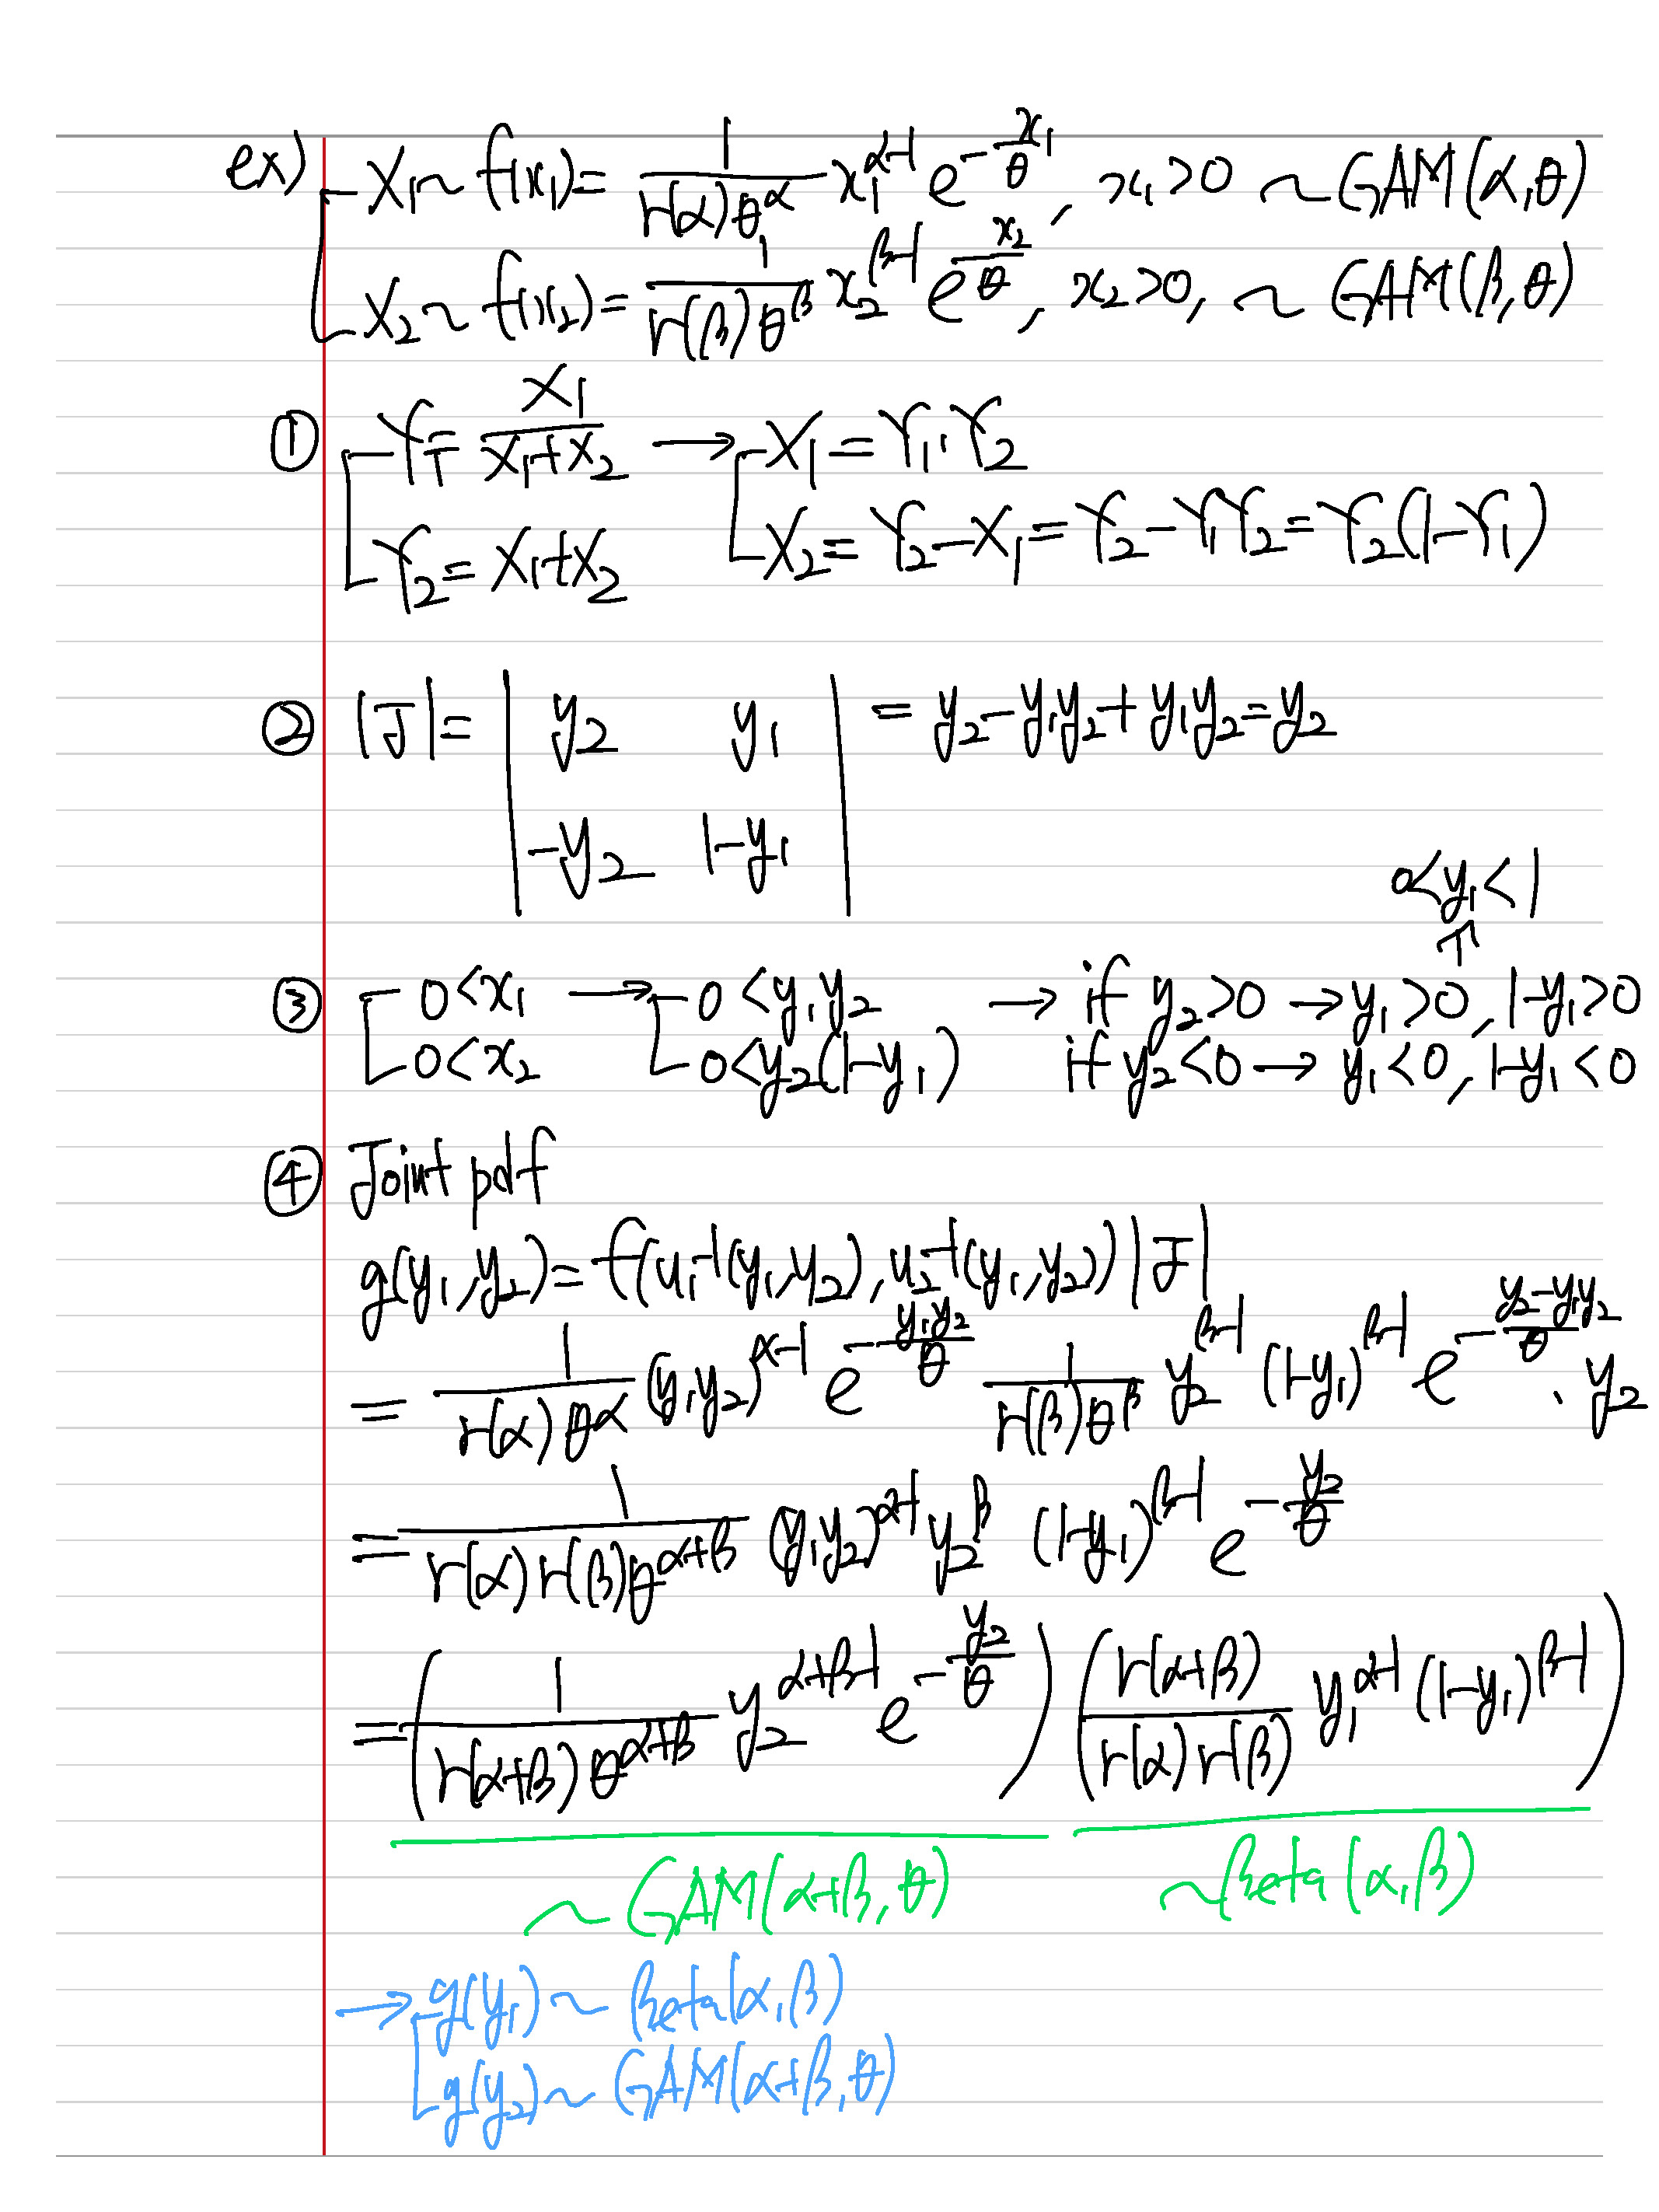 ex) X₁ ~ f(x₁) = 1/(Γ(α)θ^α) x₁^(α-1) e^(-x₁/θ), x₁>0 ~ GAM(α,θ)
X₂ ~ f(x₂) = 1/(Γ(β)θ^β) x₂^(β-1) e^(x₂/θ), x₂>0, ~ GAM(β,θ)
① Y₁ = X₁/(X₁+X₂) → X₁ = Y₁·Y₂
Y₂ = X₁+X₂ X₂ = Y₂-X₁ = Y₂-Y₁Y₂ = Y₂(1-Y₁)
② |J| = | y₂ y₁ | = y₂-y₁y₂+y₁y₂ = y₂
| -y₂ 1-y₁ |
0<y₁<1
↑
③ 0<x₁ → 0<y₁y₂ → if y₂>0 → y₁>0, 1-y₁>0
0<x₂ 0<y₂(1-y₁) if y₂<0 → y₁<0, 1-y₁<0
④ Joint pdf
g(y₁,y₂) = f(u₁⁻¹(y₁,y₂), u₂⁻¹(y₁,y₂)) |J|
= 1/(Γ(α)θ^α) (y₁y₂)^(α-1) e^(-y₁y₂/θ) 1/(Γ(β)θ^β) y₂^(β-1) (1-y₁)^(β-1) e^(-(y₂-y₁y₂)/θ) · y₂
= 1/(Γ(α)Γ(β)θ^(α+β)) (y₁y₂)^(α-1) y₂^β (1-y₁)^(β-1) e^(-y₂/θ)
= (1/(Γ(α+β)θ^(α+β)) y₂^(α+β-1) e^(-y₂/θ)) (Γ(α+β)/(Γ(α)Γ(β)) y₁^(α-1) (1-y₁)^(β-1))
~ GAM(α+β,θ) ~ Beta(α,β)
→ g(y₁) ~ Beta(α,β)
g(y₂) ~ GAM(α+β,θ)